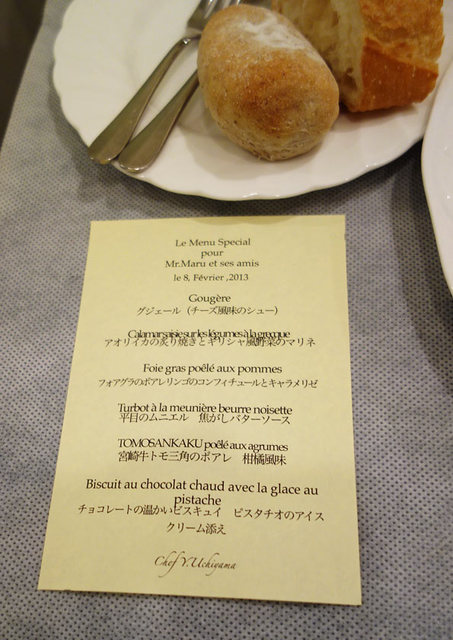 Le Menu Special
pour
Mr.Maru et ses amis
le 8, Février ,2013
Gougère
グジェール（チーズ風味のシュー）
Calamar saisie sur les légumes à la grecque
アオリイカの炙り焼きとギリシャ風野菜のマリネ
Foie gras poêlé aux pommes
フォアグラのポアレリンゴのコンフィチュールとキャラメリゼ
Turbot à la meunière beurre noisette
平目のムニエル　焦がしバターソース
TOMOSANKAKU poêlé aux agrumes
宮崎牛トモ三角のポアレ　柑橘風味
Biscuit au chocolat chaud avec la glace au
pistache
チョコレートの温かいビスキュイ　ピスタチオのアイス
クリーム添え
Chef Y.Uchiyama